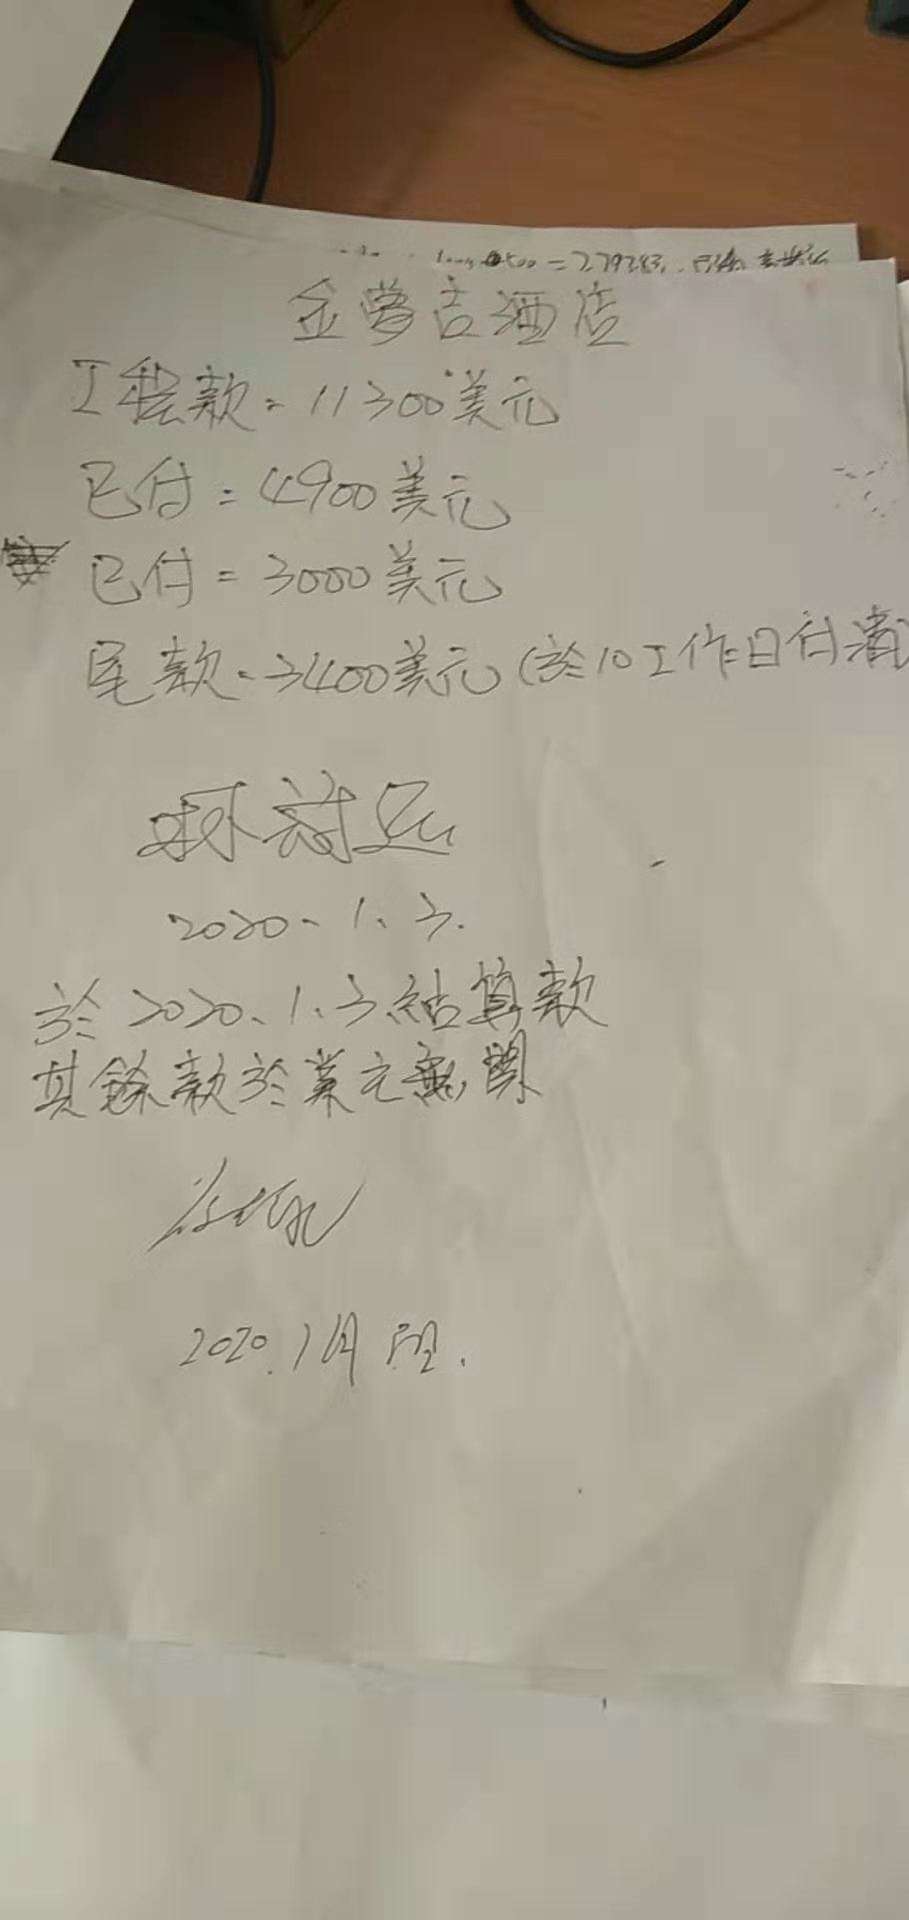 =279283.
金夢吉酒店
工程款=11300美元
已付=4900美元
已付=3000美元
尾款=3400美元(於10工作日付清
2020.1.3.
於2020.1.3.結算款
其餘款於業元無関
2020.1月